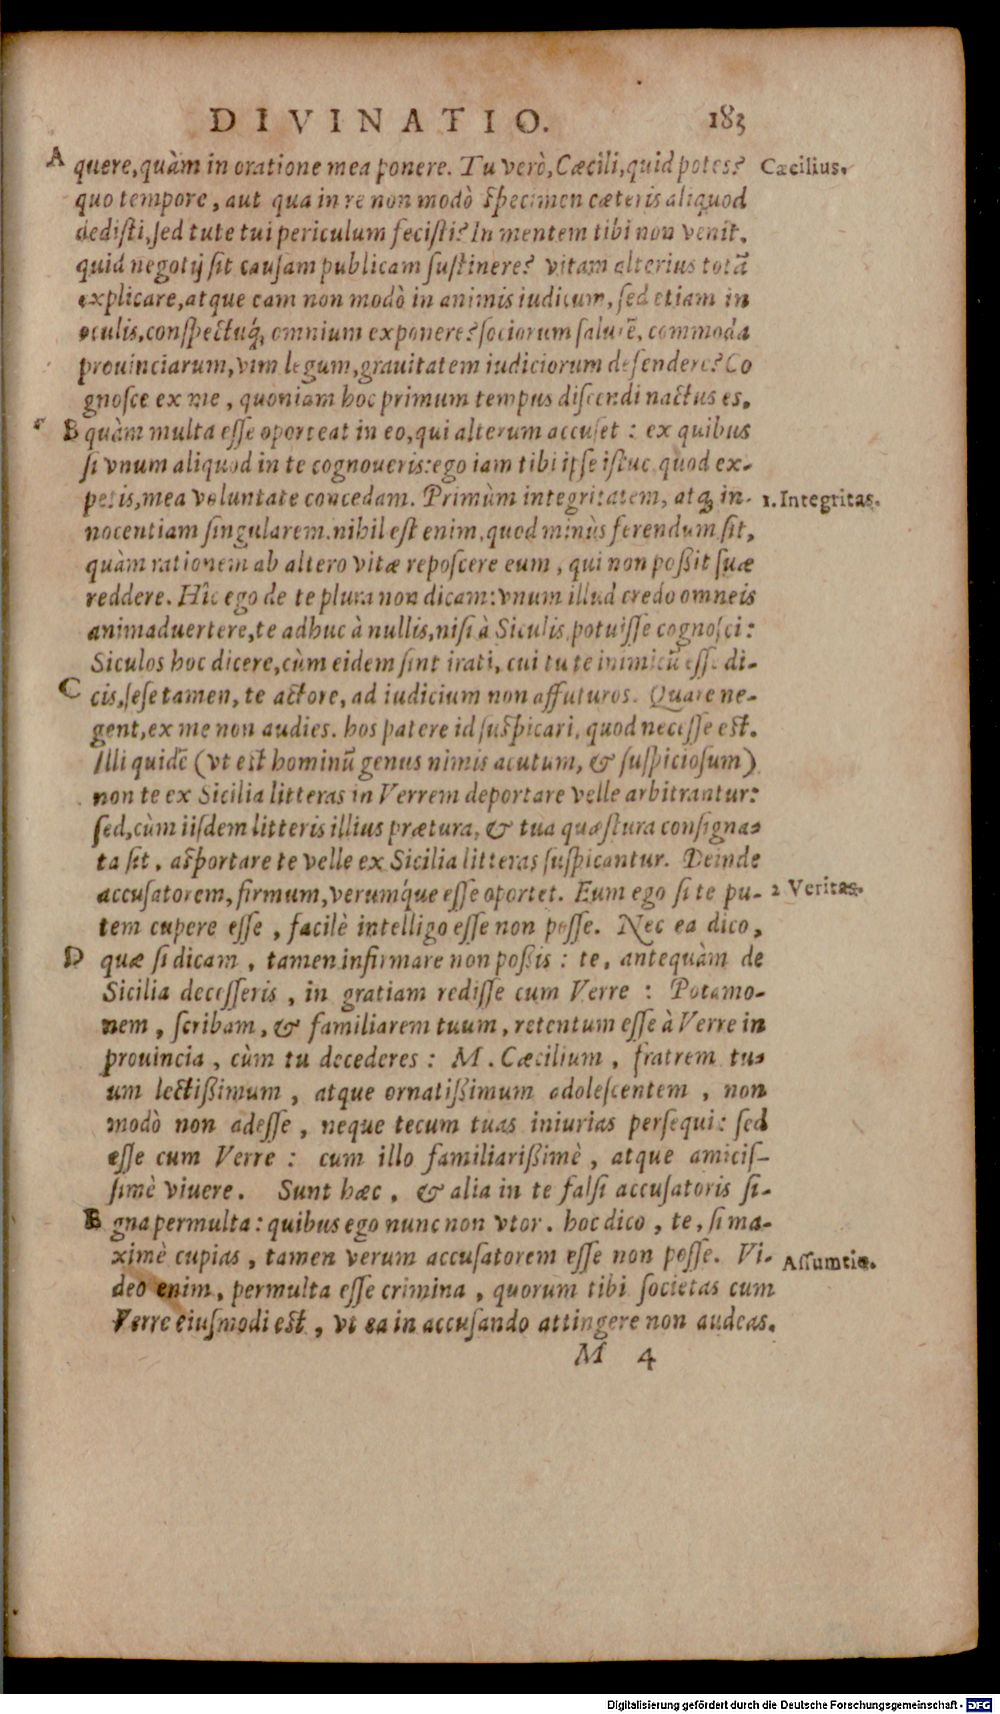 DIVINATIO. 183
A quere, quàm in oratione mea ponere. Tu verò, Cæcili, quid potes? Cæcilius.
quo tempore, aut qua in re non modò specimen cæteris aliquod
dedisti, sed tute tui periculum fecisti? In mentem tibi non venit,
quid negotij sit causam publicam sustinere? vitam alterius totã
explicare, atque eam non modò in animis iudicum, sed etiam in
oculis, conspectuq́; omnium exponere? sociorum salutẽ, commoda
prouinciarum, vim legum, grauitatem iudiciorum defendere? Co
gnosce ex me, quoniam hoc primum tempus discendi nactus es,
B quàm multa esse oporteat in eo, qui alterum accuset: ex quibus
si vnum aliquod in te cognoueris: ego iam tibi ipse istuc, quod ex-
petis, mea voluntate concedam. Primùm integritatem, atq; in- 1. Integritas.
nocentiam singularem. nihil est enim, quod minùs ferendum sit,
quàm rationem ab altero vitæ reposcere eum, qui non possit suæ
reddere. Hîc ego de te plura non dicam: vnum illud credo omneis
animaduertere, te adhuc à nullis, nisi à Siculis, potuisse cognosci:
Siculos hoc dicere, cùm eidem sint irati, cui tu te inimicũ esse di-
C cis, sese tamen, te actore, ad iudicium non affuturos. Quare ne-
gent, ex me non audies. hos patere id suspicari, quod necesse est.
Illi quidẽ (vt est hominũ genus nimis acutum, & suspiciosum)
non te ex Sicilia litteras in Verrem deportare velle arbitrantur:
sed, cùm iisdem litteris illius prætura, & tua quæstura consigna-
ta sit, asportare te velle ex Sicilia litteras suspicantur. Deinde
accusatorem, firmum, verumq́ue esse oportet. Eum ego si te pu- 2 Veritas.
tem cupere esse, facilè intelligo esse non posse. Nec ea dico,
D quæ si dicam, tamen infirmare non possis: te, antequàm de
Sicilia decesseris, in gratiam redisse cum Verre: Potamo-
nem, scribam, & familiarem tuum, retentum esse à Verre in
prouincia, cùm tu decederes: M. Cæcilium, fratrem tu-
um lectissimum, atque ornatissimum adolescentem, non
modò non adesse, neque tecum tuas iniurias persequi: sed
esse cum Verre: cum illo familiarissimè, atque amicis-
simè viuere. Sunt hæc, & alia in te falsi accusatoris si-
E gna permulta: quibus ego nunc non vtor. hoc dico, te, si ma-
ximè cupias, tamen verum accusatorem esse non posse. Vi- Assumtio.
deo enim, permulta esse crimina, quorum tibi societas cum
Verre eiusmodi est, vt ea in accusando attingere non audeas.
M 4
Digitalisierung gefördert durch die Deutsche Forschungsgemeinschaft - DFG